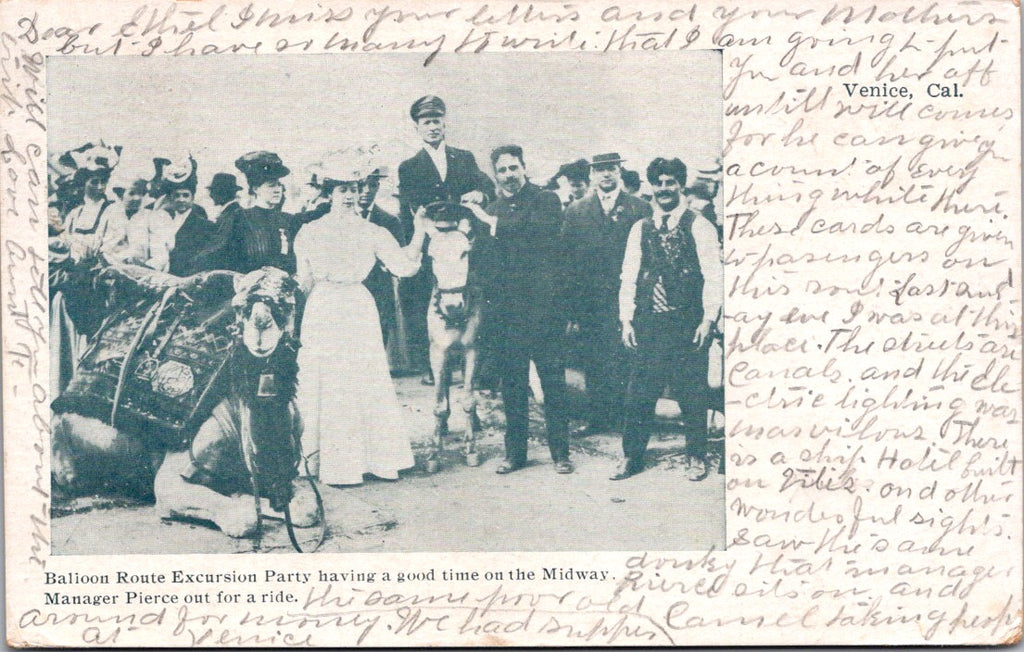 Dear Ethel I miss your letters and your Mothers
but I have so many to write that I am going to put
you and her off
Venice, Cal.
untill Will comes
for he can give
acount of every
thing while there.
These cards are given
to pasengers on
this road. Last
eve I was at this
place. The streets are
Canals. and the ele
-ctric lighting was
There
is a ship Hotel built
on and other
wonderful sights.
Saw the same
donky that manager
Pierce sits on. and
the same poor old Camel taking people
around for money. We had supper
at Venice
Will can tell about the
trip. Love Aunt T -
Balloon Route Excursion Party having a good time on the Midway.
Manager Pierce out for a ride.